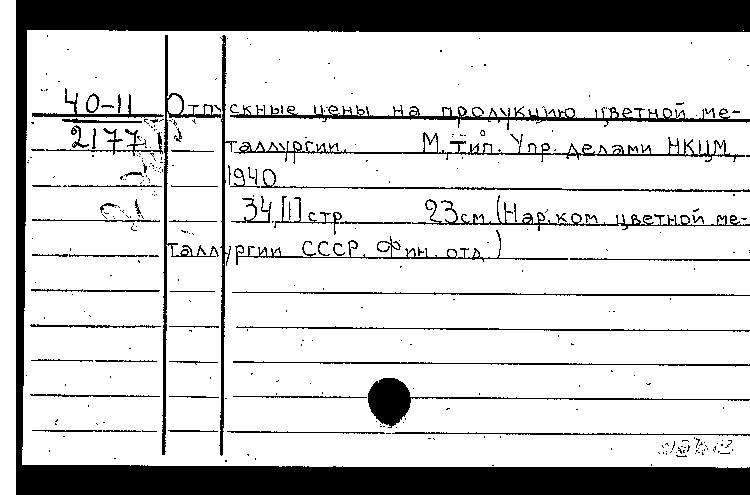 40-11 Отпускные цены на продукцию цветной ме-
2177 таллургии. М., тип. Упр. делами НКЦМ,
1940
34,[1] стр. 23 см. (Нар. ком. цветной ме-
таллургии СССР. Фин. отд.)